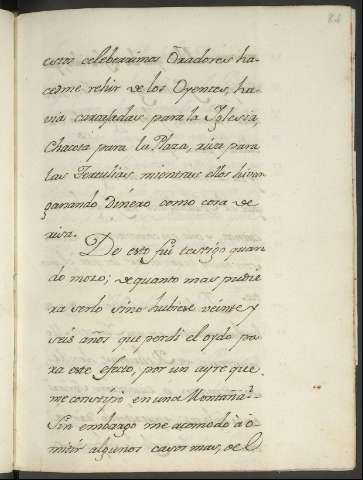 84
estos celeberrimos Oradores ha-
cerme rehir de los Oyentes, ha-
via carcajadas para la Iglesia,
Chacota para la Plaza, risa para
las Tertulias mientras ellos hivan
ganando Dinero como cosa de
risa.
De esto fui testigo quan-
do mozo; de quanto mas pudie
ra serlo sino hubiese veinte y
seis años que perdi el oydo pa-
ra este efecto, por un ayre que
me constipó en una Montaña?
Sin embargo me acomodo à o-
mitir algunos casos mas, de el